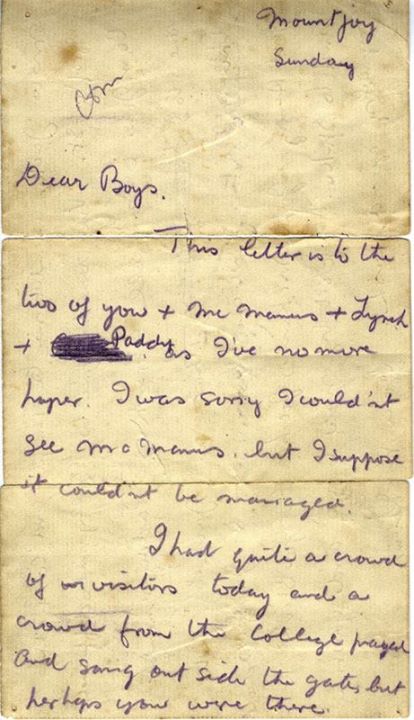 Mountjoy
Sunday
Dear Boys.
This letter is to the
two of you + Mc Manus + Lynch
+ Paddy. as I've no more
paper. I was sorry I could'nt
see McManus. but I suppose
it could'nt be managed.
I had quite a crowd
of visitors today and a
crowd from the College prayed
and sang out side the gates but
perhaps you were there.